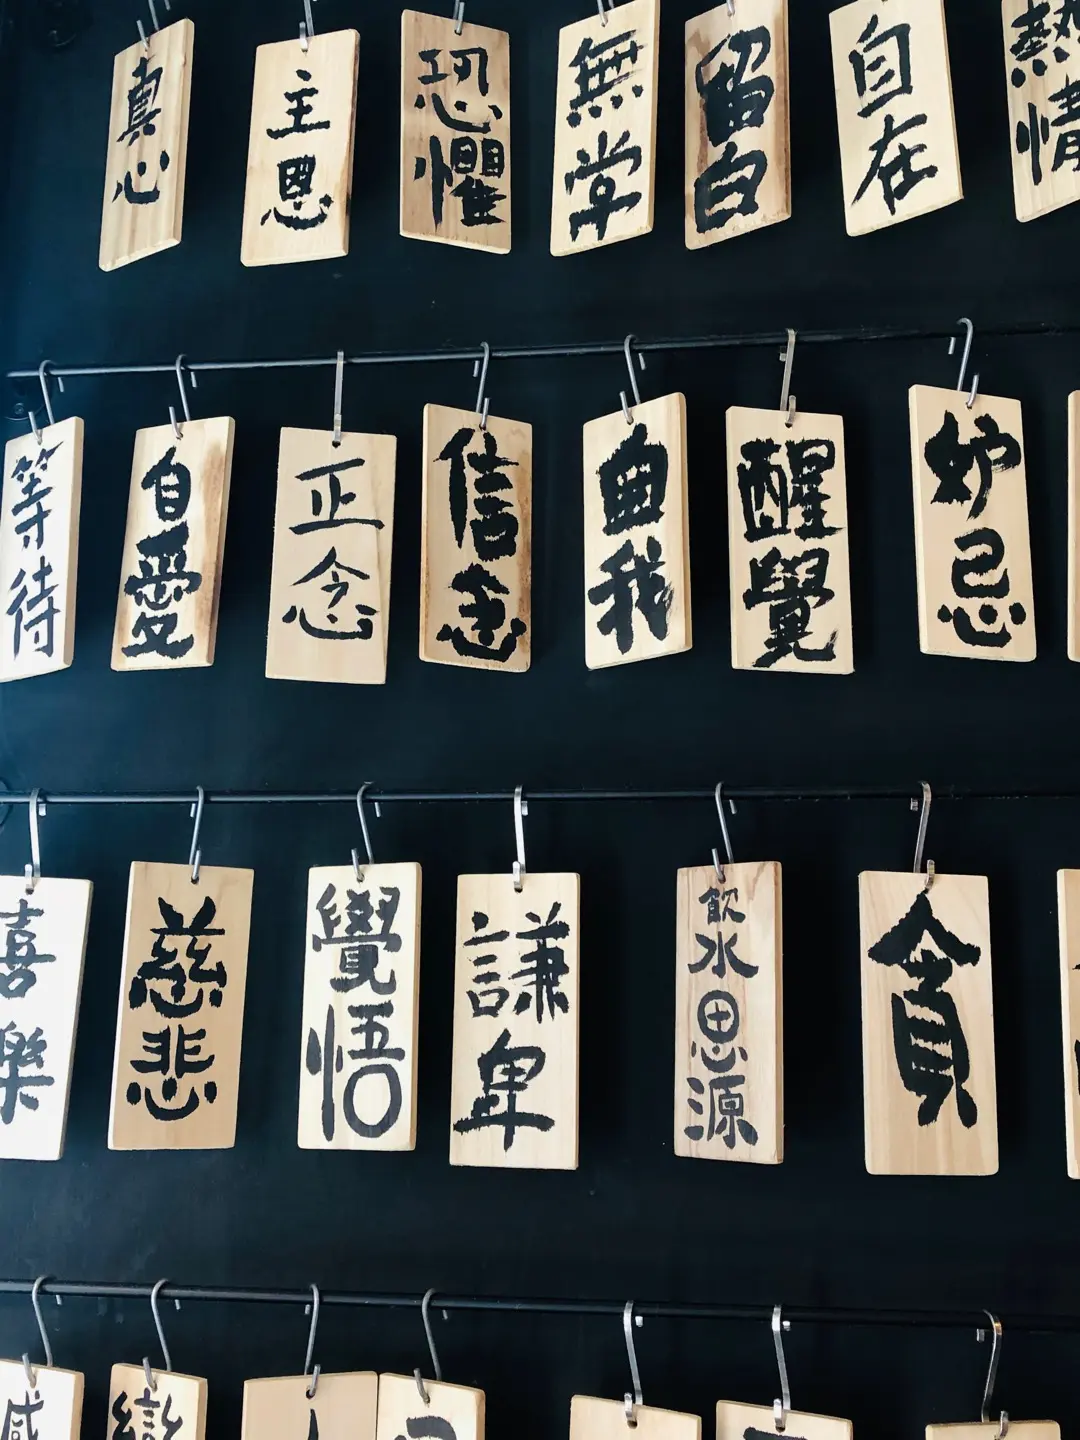 真心
主恩
恐懼
無常
留白
自在
熱情
等待
自愛
正念
信念
我
醒覺
妒忌
喜樂
慈悲
覺悟
謙卑
飲水思源
貪
感